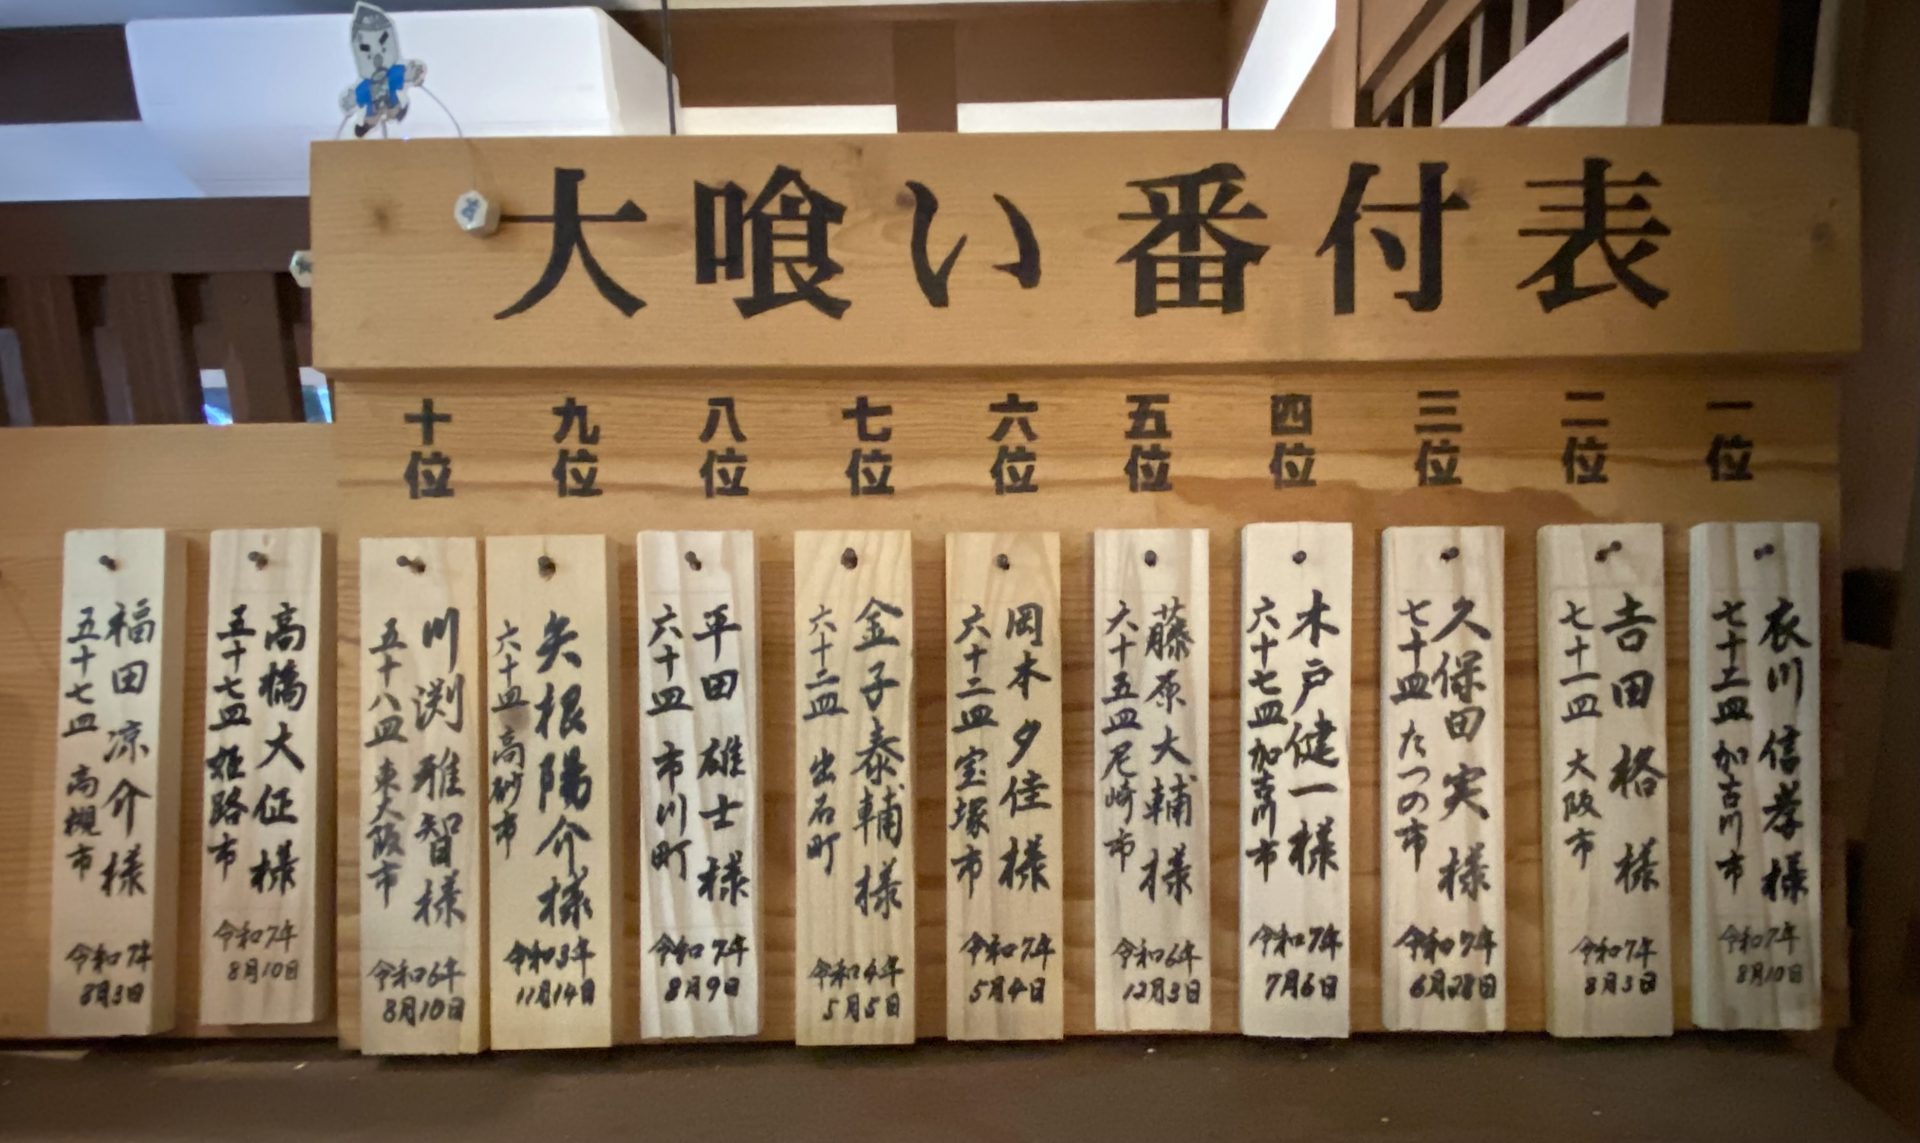 大喰い番付表
一位
衣川信孝様
七十三皿 加古川市
令和7年
8月10日
二位
吉田格様
七十一皿 大阪市
令和7年
8月3日
三位
久保田実様
七十皿 たつの市
令和7年
6月28日
四位
木戸健一様
六十七皿 加古川市
令和7年
7月6日
五位
藤原大輔様
六十五皿 尼崎市
令和6年
12月3日
六位
岡本夕佳様
六十二皿 宝塚市
令和7年
5月4日
七位
金子泰輔様
六十二皿 出石町
令和4年
5月5日
八位
平田雄士様
六十皿 市川町
令和7年
8月9日
九位
矢根陽介様
六十皿 高砂市
令和3年
11月14日
十位
川渕雅智様
五十八皿 東大阪市
令和6年
8月10日
高橋大征様
五十七皿 姫路市
令和7年
8月10日
福田凉介様
五十七皿 高槻市
令和7年
8月3日